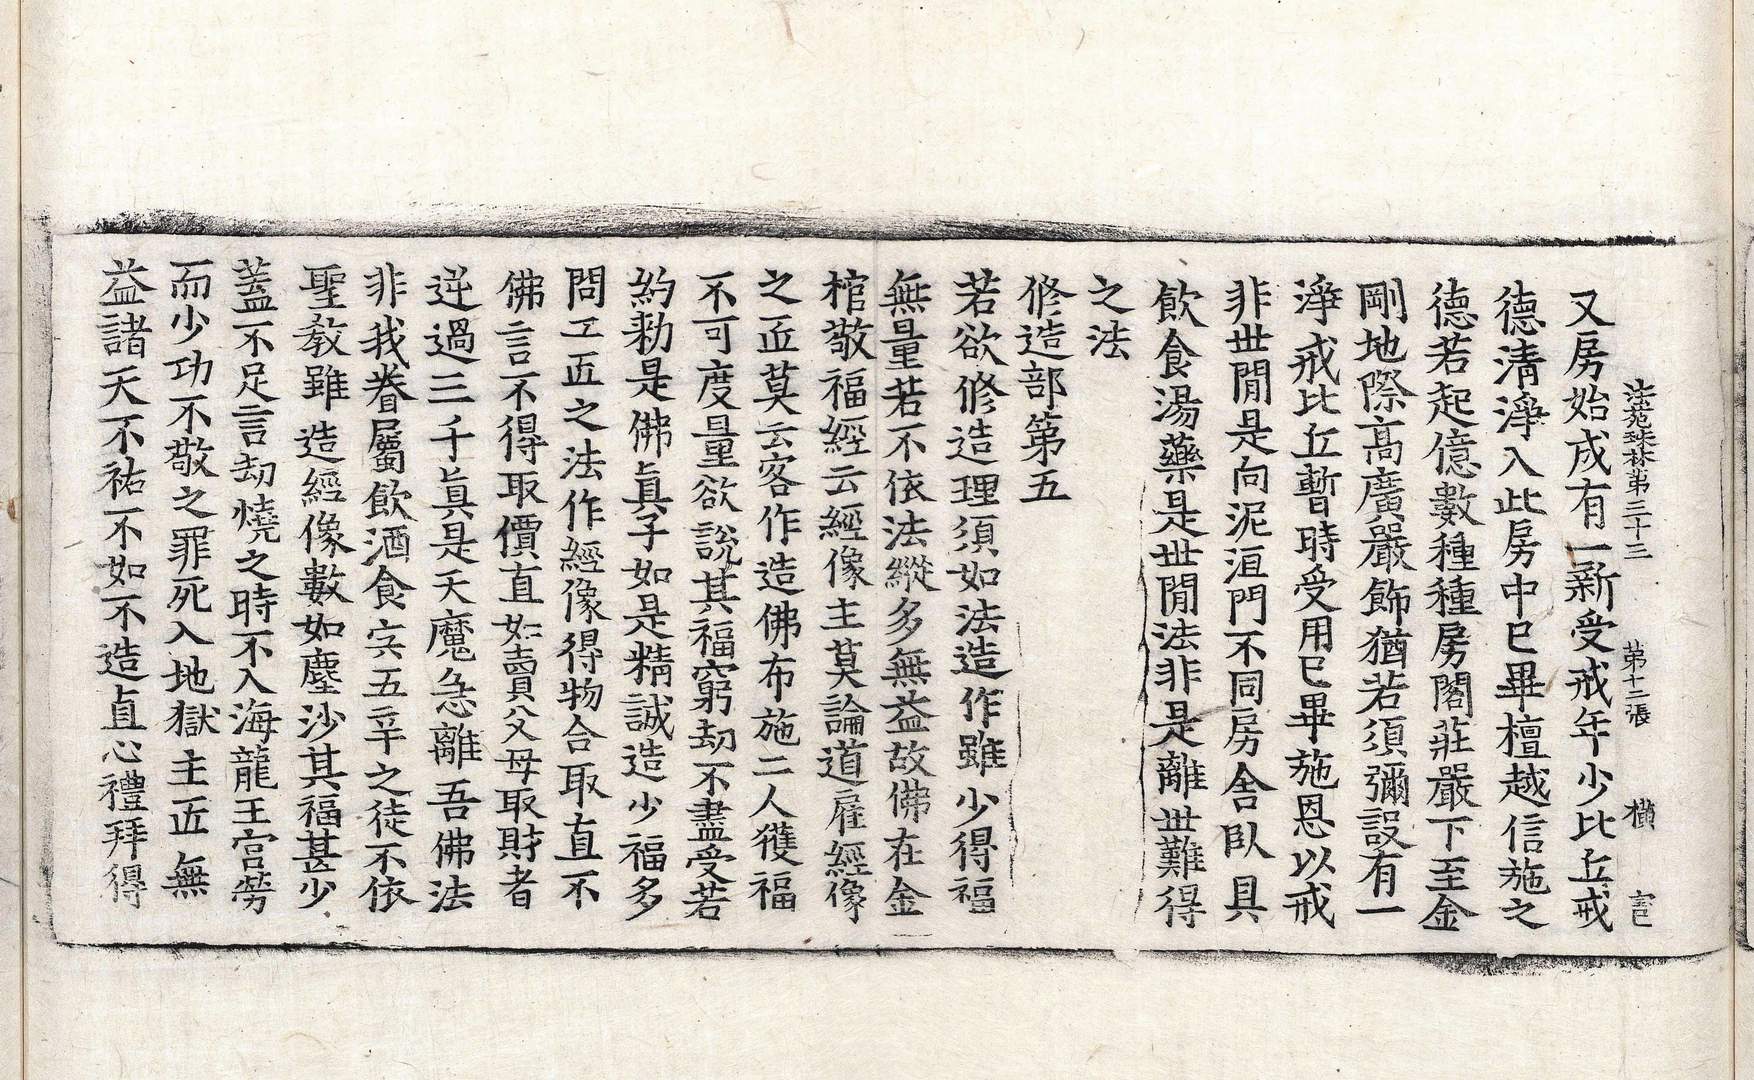 法苑珠林第三十三　第十二張　橫
又房始成有一新受戒年少比丘戒
德清淨入此房中已畢檀越信施之
德若起億數種種房閣莊嚴下至金
剛地際高廣嚴飾猶若須彌設有一
淨戒比丘暫時受用已畢施恩以戒
非世間是向泥洹門不同房舍臥具
飲食湯藥是世間法非是離世難得
之法
修造部第五
若欲修造理須如法造作雖少得福
無量若不依法縱多無益故佛在金
棺敬福經云經像主莫論道雇經像
之匠莫云客作造佛布施二人獲福
不可度量欲說其福窮劫不盡受若
約勑是佛眞子如是精誠造少福多
問工匠之法作經像得物合取直不
佛言不得取價直如賣父母取財者
逆過三千眞是天魔急離吾佛法
非我眷屬飲酒食宍五辛之徒不依
聖教雖造經像數如塵沙其福甚少
蓋不足言劫燒之時不入海龍王宮勞
而少功不敬之罪死入地獄主匠無
益諸天不祐不如不造直心禮拜得